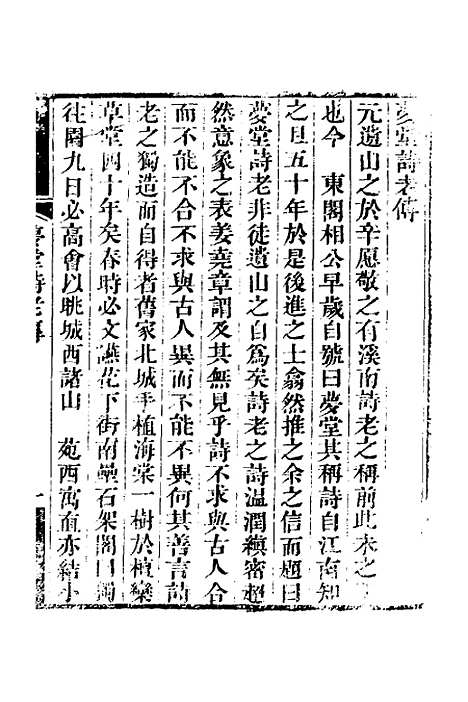 夢堂詩老傳
元遺山之於辛愿敬之有溪南詩老之稱前此未之
也今　東閣相公早歲自號曰夢堂其稱詩自江南知
之且五十年於是後進之士翕然推之余之信而題曰
夢堂詩老非徒遺山之自為矣詩老之詩溫潤縝密超
然意象之表姜堯章謂及其無見乎詩不求與古人合
而不能不合不求與古人異而不能不異何其善言詩
老之獨造而自得者舊家北城手植海棠一樹於檀欒
草堂四十年矣春時必文讌花下街南疊石架閣曰獨
往園九日必高會以眺城西諸山　苑西寓直亦結小
夢堂詩老傳
一